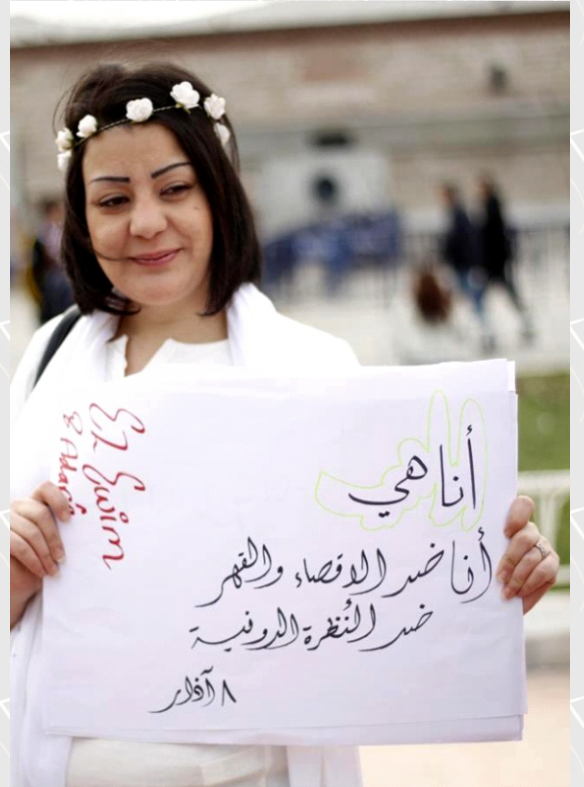 أنا هي
أنا ضد الاقصاء والقهر
ضد النُظرة الدونية
٨ آذار
Ez Ewim
8 Adarê